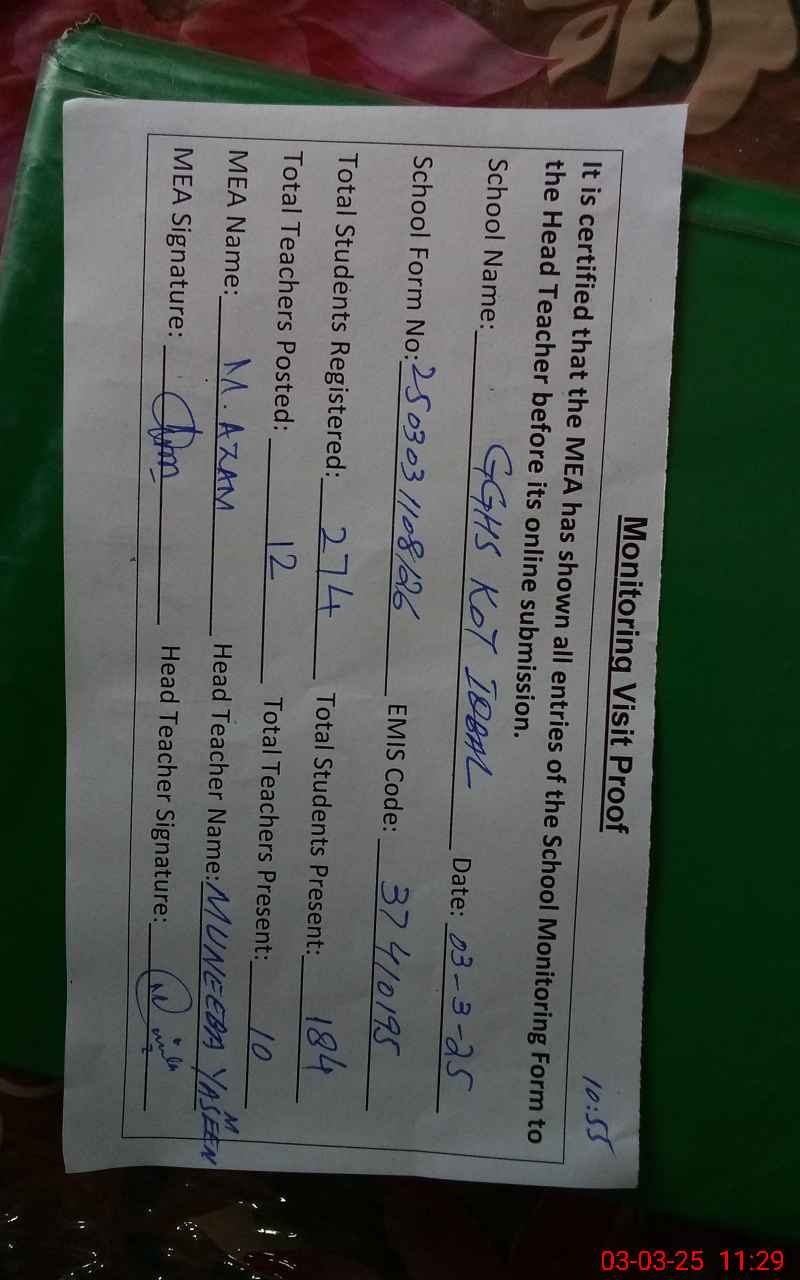 Monitoring Visit Proof
10:55
It is certified that the MEA has shown all entries of the School Monitoring Form to
the Head Teacher before its online submission.
School Name: GGHS KOT IQBAL Date: 03-3-25
School Form No: 2503031108626 EMIS Code: 37410195
Total Students Registered: 274 Total Students Present: 184
Total Teachers Posted: 12 Total Teachers Present: 10
MEA Name: M. AZAM Head Teacher Name: MUNEEBA YASEEN
MEA Signature: Head Teacher Signature:
03-03-25 11:29